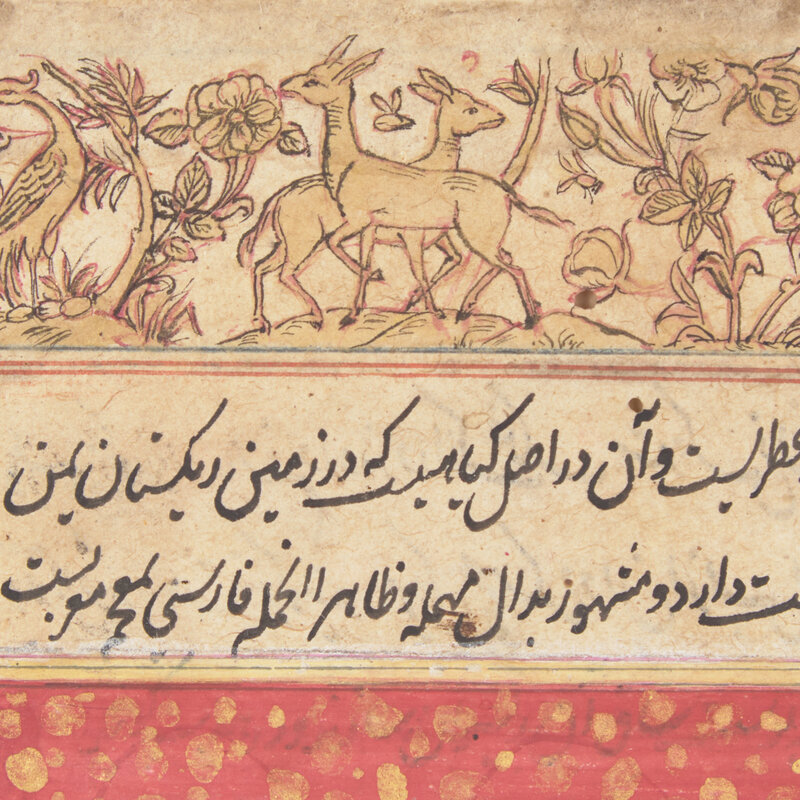 عطریست و آن در اصل کیاهیست که در زمین ریکستان یمن
دارد و مشهور بدال مهمله و ظاهرا الحمله فارسی معرب است